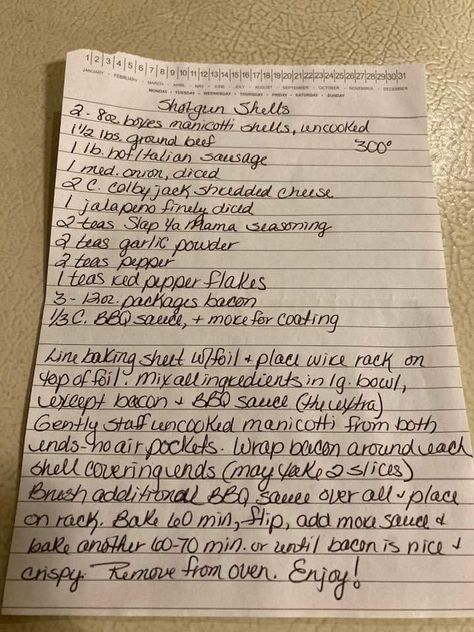 1 2 3 4 5 6 7 8 9 10 11 12 13 14 15 16 17 18 19 20 21 22 23 24 25 26 27 28 29 30 31
JANUARY - FEBRUARY - MARCH - APRIL - MAY - JUNE - JULY - AUGUST - SEPTEMBER - OCTOBER - NOVEMBER - DECEMBER
MONDAY - TUESDAY - WEDNESDAY - THURSDAY - FRIDAY - SATURDAY - SUNDAY
Shotgun Shells
2 - 8oz. boxes manicotti shells, uncooked
1 1/2 lbs. ground beef 300°
1 lb. hot Italian sausage
1 med. onion, diced
2 C. colby jack shredded cheese
1 jalapeno finely diced
2 teas Slap Ya Mama seasoning
2 teas garlic powder
2 teas pepper
1 teas red pepper flakes
3 - 12oz. packages bacon
1/3 C. BBQ sauce, + more for coating
Line baking sheet w/foil + place wire rack on
top of foil. Mix all ingredients in lg. bowl,
except bacon + BBQ sauce (the extra)
Gently stuff uncooked manicotti from both
ends - no air pockets. Wrap bacon around each
shell covering ends (may take 2 slices)
Brush additional BBQ sauce over all + place
on rack. Bake 60 min, flip, add more sauce +
bake another 60-70 min. or until bacon is nice +
crispy. Remove from oven. Enjoy!